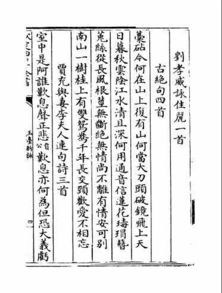 劉孝威詠佳麗一首
古絶句四首
藁砧今何在山上復有山何當大刀頭破鏡飛上天
日暮秋雲陰江水清且深何用通音信蓮花瑇瑁簪
菟絲從長風根莖無斷絶無情尚不離有情安可别
南山一樹桂上有雙鴛鴦千年長交頸歡愛不相忘
賈充與妻李夫人連句詩三首
室中是阿誰歎息聲正悲歎息亦何為但恐大義虧
玉臺新詠